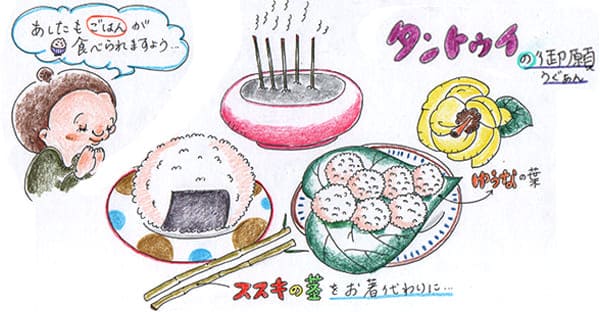 あしたもごはんが
食べられますよう…
タントゥイの御願
うぐぁん
ゆうなの葉
ススキの茎をお箸代わりに…